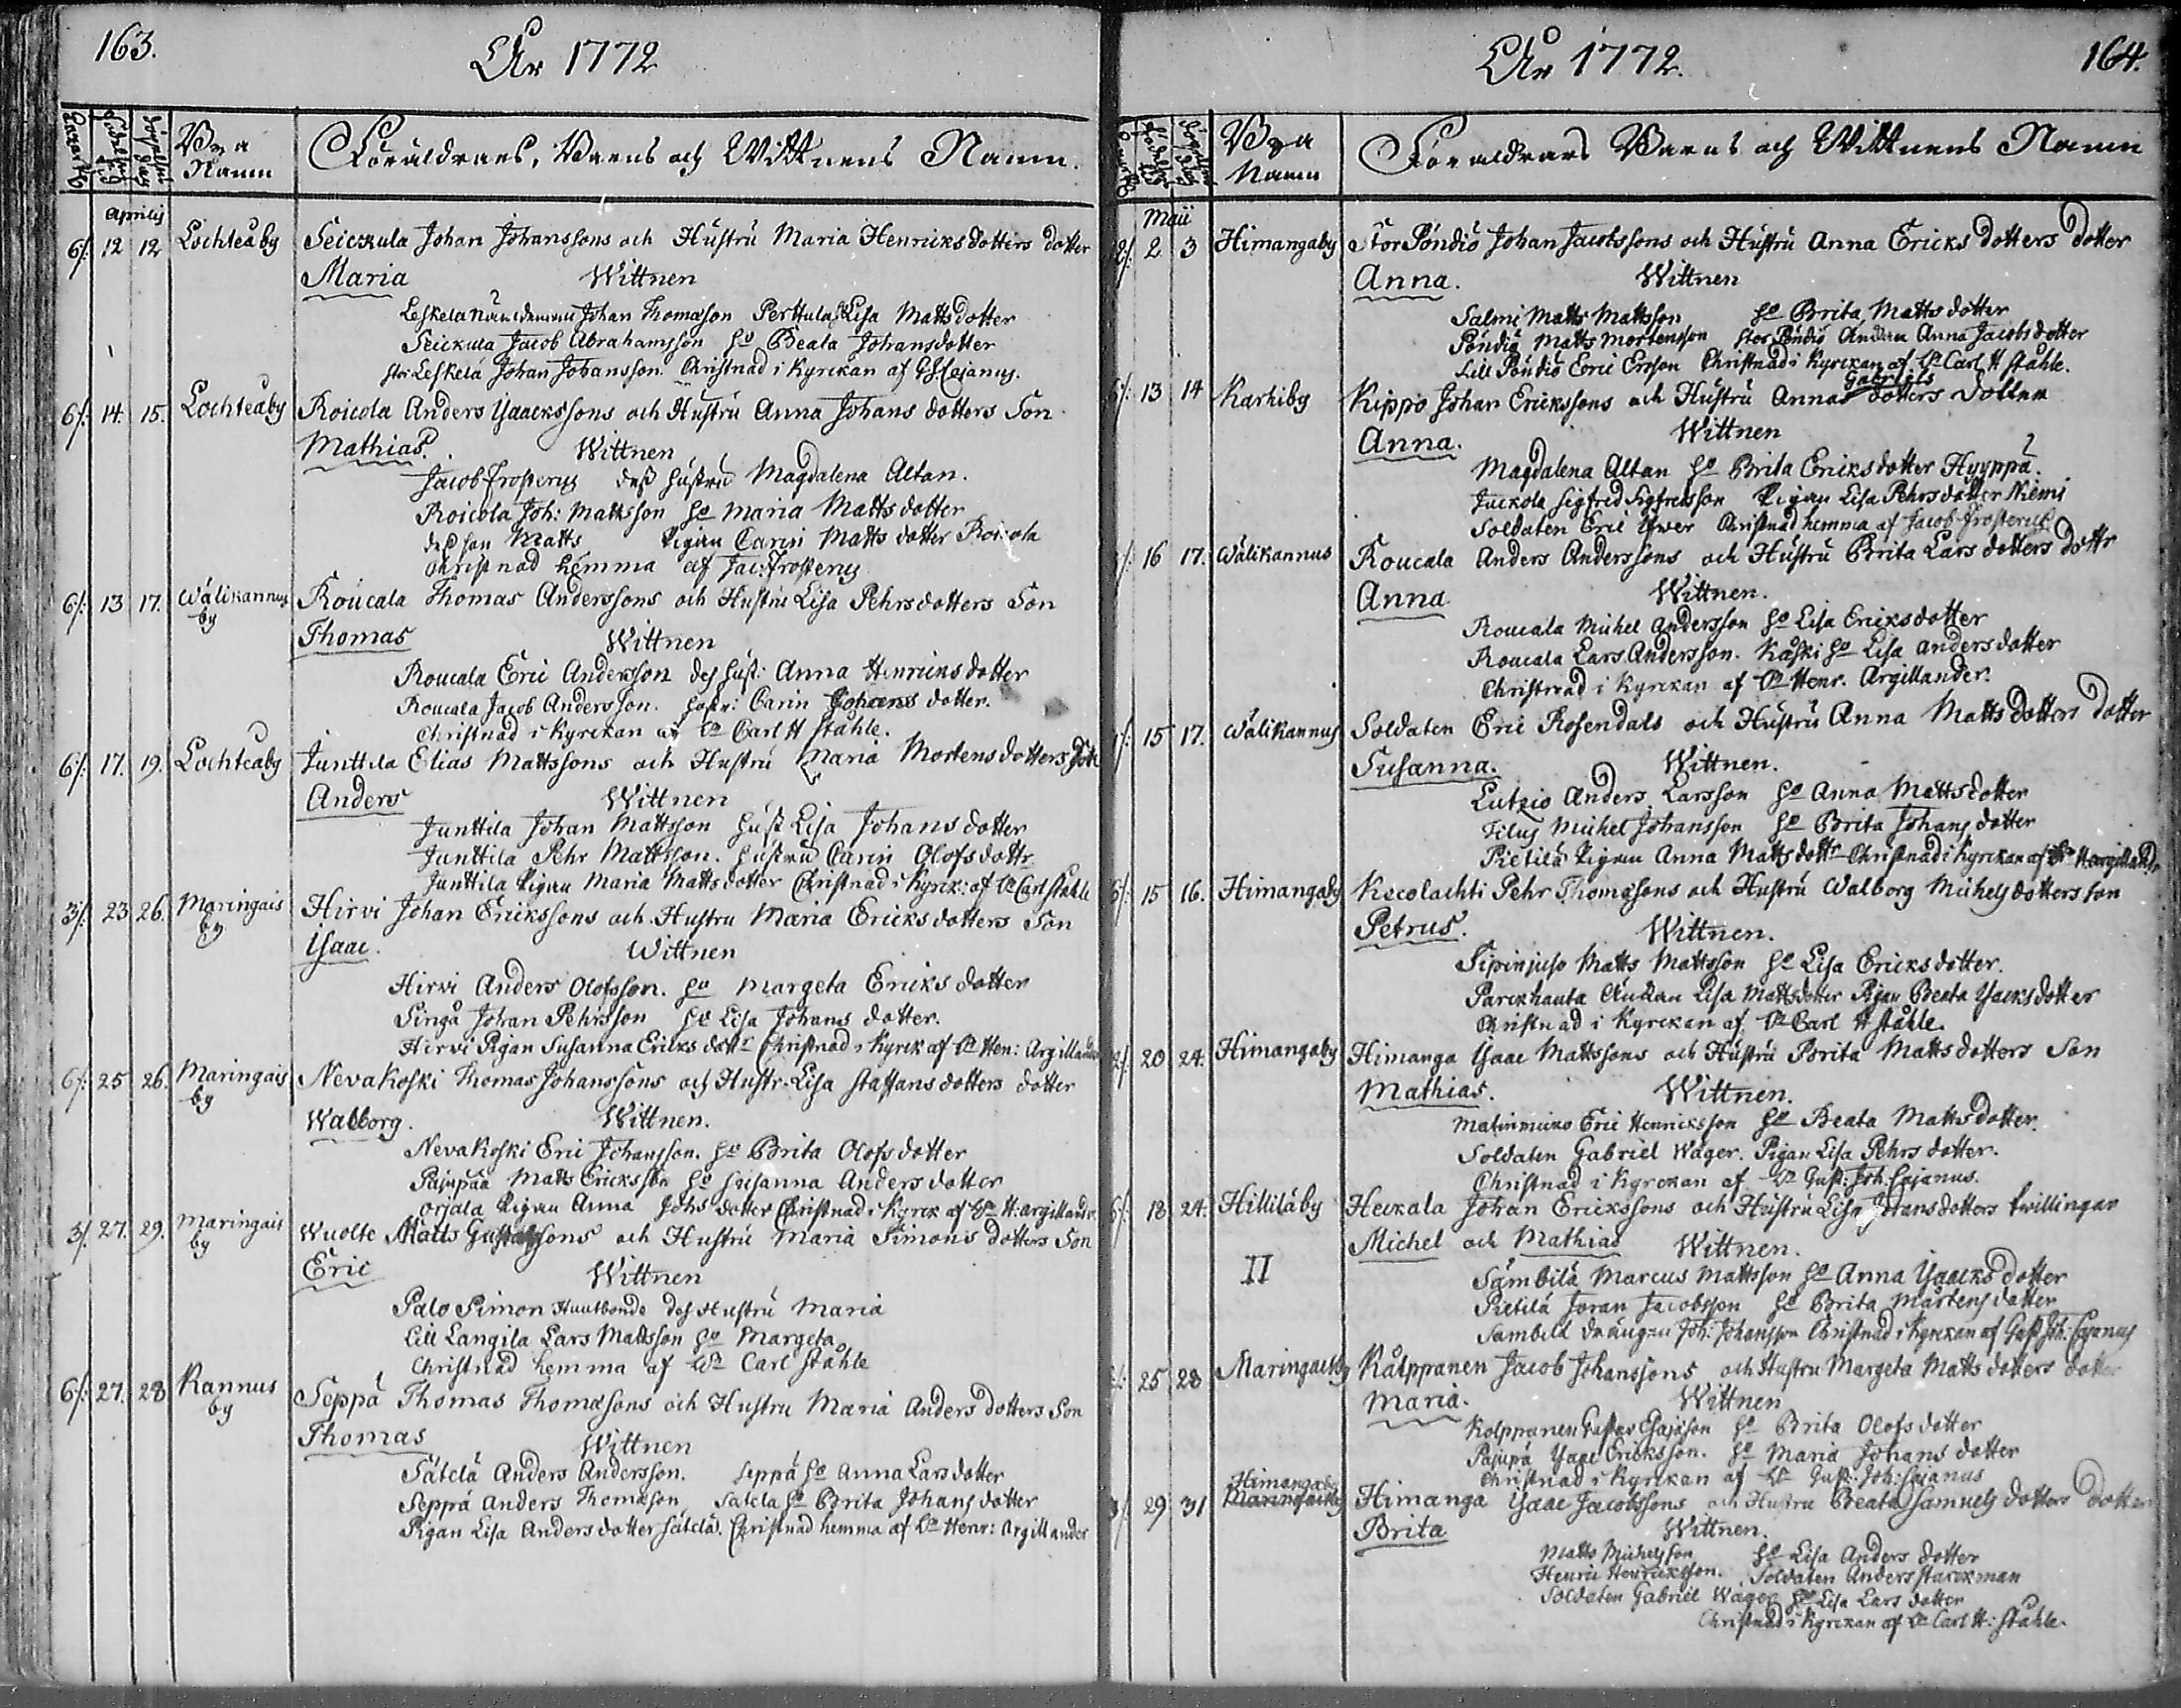 163.
År 1772
Bya Namn
Föräldrars, Barns och Wittnens Namn.
Aprilis
6/: 12 12 Lochteåby Seickula Johan Johanssons och Hustru Maria Henricksdotters dotter
Maria Wittnen
Leskelä Nämndeman Johan Thomasson Perttula Lisa Mattsdotter
Seickula Jacob Abrahamsson Ho Beata Johansdotter
Stor Leskelä Johan Johansson. Christnad i Kyrckan af G. J. Cajanus.
6/: 14. 15. Lochteåby Roicola Anders Ysaackssons och Hustru Anna Johans dotters Son
Mathias. Wittnen
Jacob Frosterus dess hustru Magdalena Altan.
Roicola Joh: Mattsson Ho Maria Matts dotter
dess son Matts Pigan Carin Matts dotter Roicola
Christnad hemma af Jac: Frosterus
6/: 13 17. Wälikannus by Roucala Thomas Anderssons och Hustru Lisa Pehrsdotters Son
Thomas Wittnen
Roucala Eric Andersson des hust: Anna Henricksdotter
Roucala Jacob Andersson. hustr: Carin Johans dotter.
Christnad i Kyrckan af Carl H Ståhle.
6/: 17. 19. Lochteåby Junttila Elias Mattssons och Hustru Maria Mortensdotters Son
Anders Wittnen
Junttila Johan Mattsson hust Lisa Johans dotter
Junttila Pehr Mattsson. hustru Carin Olofsdottr
Junttila Pigan Maria Mattsdotter Christnad i Kyrck: af Carl Ståhle
3/: 23 26. Maringais by Hirvi Johan Erickssons och Hustru Maria Ericksdotters Son
Isaac. Wittnen
Hirvi Anders Olofsson. Ho Margeta Ericks dotter
Singå Johan Pehrsson Ho Lisa Johans dotter.
Hirvi Pigan Susanna Ericks dottr Christnad i Kyrck af Hen: Argillander
6/: 25 26. Maringais by Nevakoski Thomas Johanssons och Hustr. Lisa Staffans dotters dotter
Walborg. Wittnen.
Nevakoski Eric Johansson. Ho Brita Olofsdotter
Pajupää Matts Ericksson Ho Susanna Anders dotter
Orjala Pigan Anna Johs dotter Christnad i Kyrck af H: argillandr.
3/. 27. 29. Maringais by Wuolte Matts Gustafssons och Hustru Maria Simons dotters Son
Eric Wittnen
Palo Simon des Hustru Maria
Lill Langila Lars Mattsson Ho Margeta
Christnad hemma af Carl Ståhle
6/: 27. 28 Kannus by Seppä Thomas Thomassons och Hustru Maria Anders dotters Son
Thomas Wittnen
Säteлä Anders Andersson. Seppä Ho Anna Larsdotter
Seppä Anders Thomasson Satela Ho Brita Johans dotter
Pigan Lisa Andersdotter Sätelä. Christnad hemma af Henr: Argillander
164.
År 1772.
Bya Namn
Föräldrars Barns och Wittnens Namn
Maii
2/: 2 3 Himangaby Stor Pöndiö Johan Jacobssons och Hustru Anna Ericks dotters dotter
Anna. Wittnen
Salmi Matts Mattsson Ho Brita Matts dotter
Pöndiö Matts Mortensson Stor Pöndiö Anna Jacobsdotter
Lill Pöndiö Eric Ersson Christnad i Kyrckan af Carl H Ståhle.
13 14 Karhiby Kippo Johan Erickssons och Hustru Anna Gabriels dotters dotter
Anna. Wittnen
Magdalena Altan Ho Brita Ericksdotter Hyyppä.
Juckola Sigfred Sigfredsson Pigan Lisa Pehrsdotter Niemi
Soldaten Eric Christnad hemma af Jacob Frosterus
16 17. Wälikannus Roucala Anders Anderssons och Hustru Brita Lars dotters dottr
Anna Wittnen.
Roucala Michel Andersson Ho Lisa Ericksdotter
Roucala Lars Andersson. Koski Ho Lisa andersdotter
Christnad i Kyrckan af Henr. Argillander.
15 17. Wälikannus Soldaten Eric Rosendals och Hustru Anna Matts dotters dotter
Susanna. Wittnen.
Lutzio Anders Larsson Ho Anna Mattsdotter
Filus Michel Johansson Ho Brita Johans dotter
Pietilä Pigan Anna Matts dottr Christnad i Kyrckan af H argillandr
6/: 15 16. Himangaby Kecolachti Pehr Thomassons och Hustru Walborg Michelsdotters Son
Petrus. Wittnen.
Sipinjuso Matts Mattsson Ho Lisa Ericksdotter.
Parckhauta Enckan Lisa Mattsdotter Pigan Beata Ysacksdotter
Christnad i Kyrckan af Carl H Ståhle.
2/: 20 24. Himangaby Himanga Ysaac Mattssons och Hustru Brita Mattsdotters Son
Mathias. Wittnen.
Eric Henricksson Ho Beata Mattsdotter.
Soldaten Gabriel Wäger. Pigan Lisa Pehrs dotter.
Christnad i Kyrckan af Gust: Joh: Cajanus.
6/: 18 24. Hilliläby Heickala Johan Erickssons och Hustru Lisa Johansdotters twillingar
Michel och Mathias Wittnen.
II
Sämbilä Marcus Mattsson Ho Anna Ysaacks dotter
Pietilä Joran Jacobsson Ho Brita Mårtensdotter
Sambilä drängen Joh: Johansson Christnad i Kyrckan af Gust Joh: Cajanus
25 28 Maringaisby Kålppanen Jacob Johanssons och Hustru Margeta Matts dotters dotter
Maria. Wittnen
Kolppanen Gustav Esajsson Ho Brita Olofs dotter
Pajupä Ysaac Ericksson. Ho Maria Johans dotter
Christnad i Kyrckan af Gust: Joh: Cajanus
3/ 29 31 Himangaby Maringaisby Himanga Ysaac Jacobssons och Hustru Beata Samuels dotters dotter
Brita Wittnen.
Matts Michelsson Ho Lisa Anders dotter
Henric Henricksson. Soldaten Anders Starckman
Soldaten Gabriel Wäger Ho Lisa Lars dotter
Christnad i Kyrckan af Carl H: Ståhle.